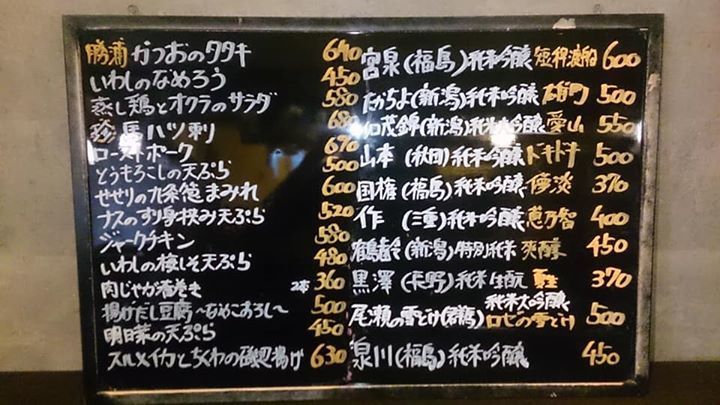 勝浦 かつおのタタキ 640
いわしのなめろう 450
蒸し鶏とオクラのサラダ 580
珍 馬ハツ刺 680
ローストポーク 670
とうもろこしの天ぷら 500
せせりの九条葱まみれ 600
ナスのすり身挟み天ぷら 520
ジャークチキン 580
いわしの梅しそ天ぷら 480
肉じゃが春巻き 2本 360
揚げだし豆腐〜なめこおろし〜 500
明日葉の天ぷら 450
スルメイカとちくわの磯辺揚げ 630
宮泉(福島)純米吟醸 600
たかちよ(新潟)純米吟醸 雄町 500
加茂錦(新潟)純米大吟醸 愛山 550
山本(秋田)純米吟醸 ドキドキ 500
国権(福島)純米吟醸 夢淡 370
作 (三重)純米吟醸 恵乃智 400
鶴齢(新潟)特別純米 爽醇 450
黒澤(長野)純米生酛 直生 370
尾瀬の雪どけ(群馬)純米大吟醸 ロゼの雪どけ 500
泉川(福島)純米吟醸 450